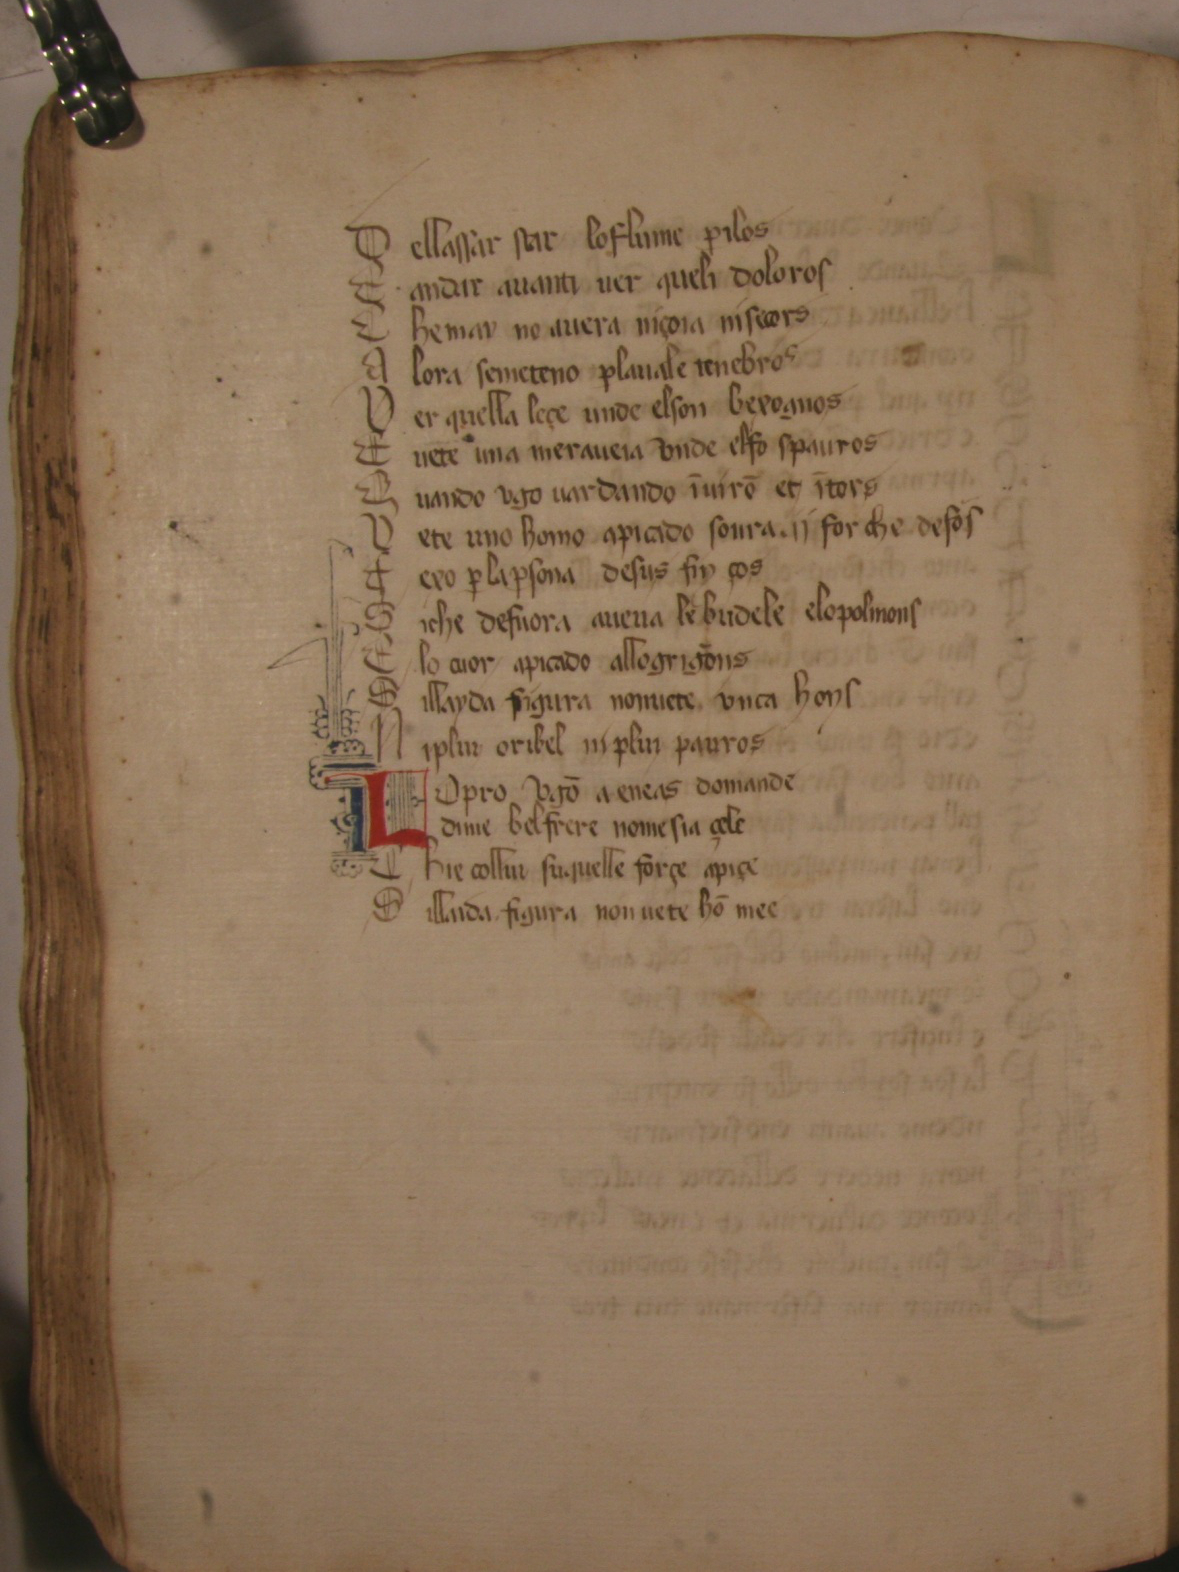 D ellassar star loflume pilos
E andar auanti uer queli doloros
C he may no auera niçoia ni secors
A lora semeteno plauale tenebros
V er quella leçe unde elson bexognos
E uete una meraueia vnde elfo spauros
Q uando vgo uardando īuirō et ītors
V ete uno homo apicado soura .ij. forche desos
E exo p la psona desus fin ços
S iche defuora aueua le budele elopolmons
E lo cuor apicado allo grigōns
S illayda figura nonuete vnca hons
N i plui oribel ni plui pauros
L O pro vgō a eneas domande
dime bel frere nome sia çele
C hie collui su quelle forçe apiçe
S illaida figura non uete hō mee